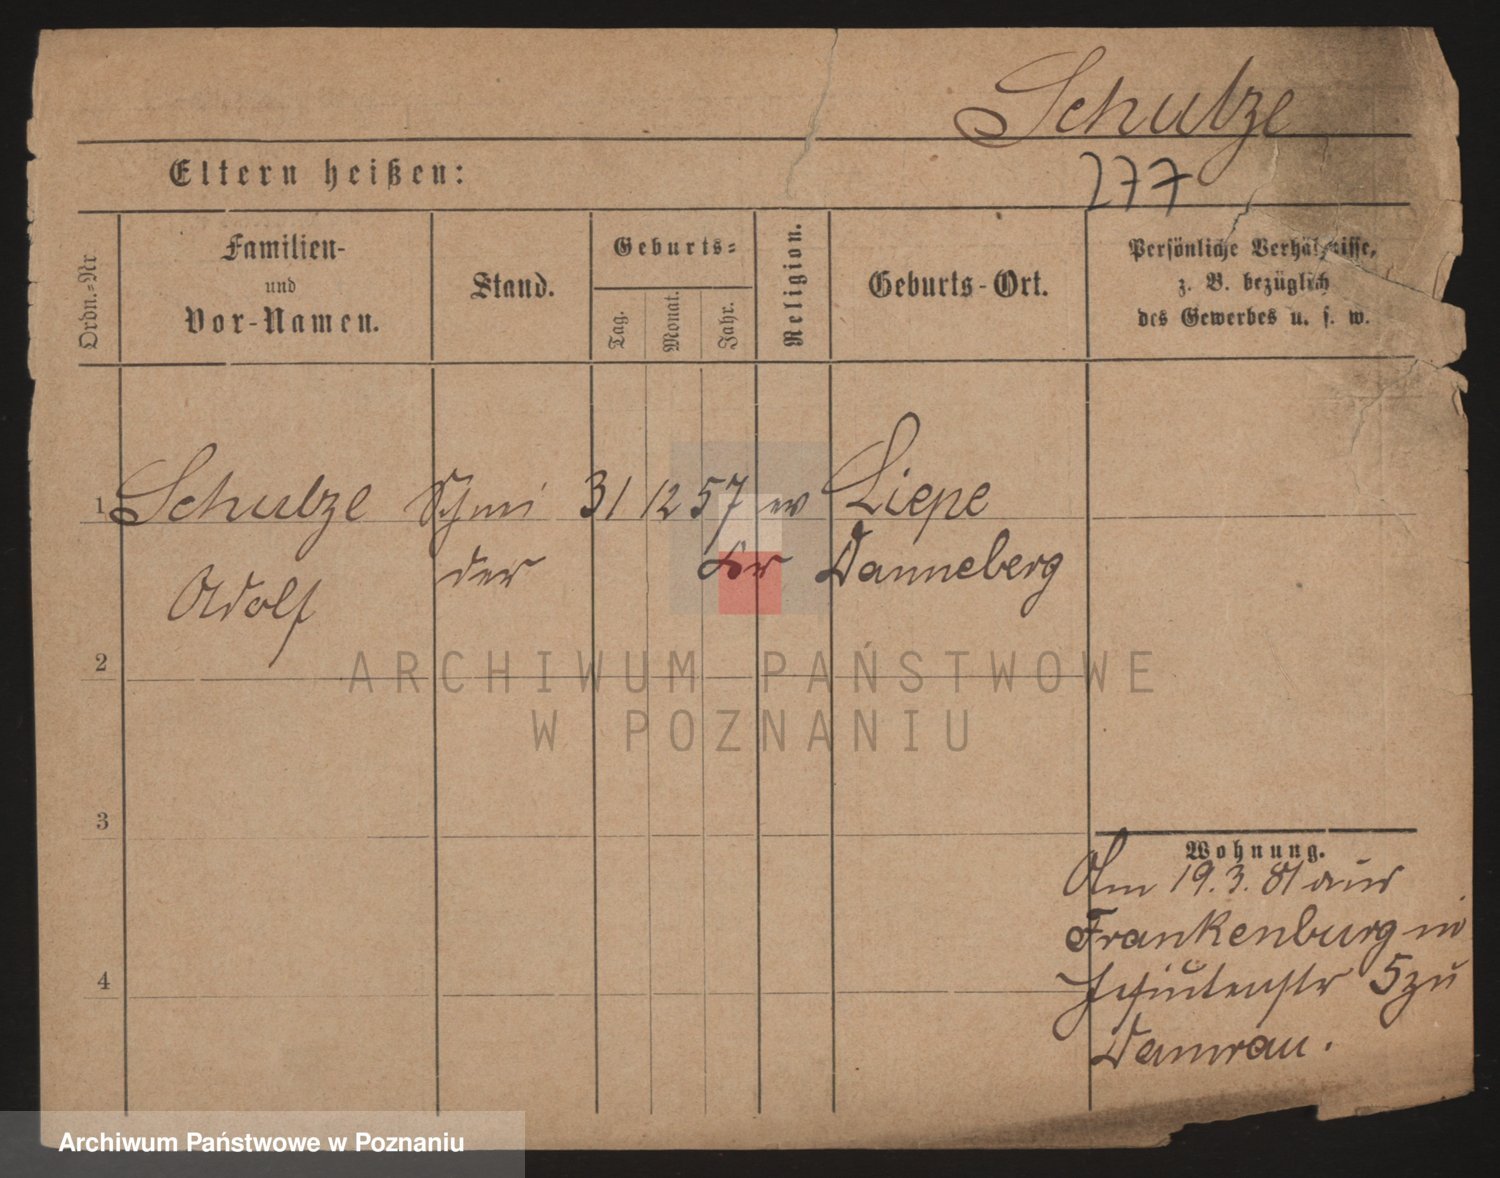 Schulze
Eltern heißen:
277
Ordn.-Nr.
Familien-
und
Vor-Namen.
Stand.
Geburts-
Tag.
Monat.
Jahr.
Religion.
Geburts-Ort.
Persönliche Verhältnisse,
z. B. bezüglich
des Gewerbes u. s. w.
1 Schulze Schnei 31 12 57 ev Liepe
Adolf der Kr Danneberg
2
ARCHIWUM PAŃSTWOWE
W POZNANIU
3
Wohnung.
Am 19.3.81 aus
Frankenburg in
5 zu
Damrau.
4
Archiwum Państwowe w Poznaniu